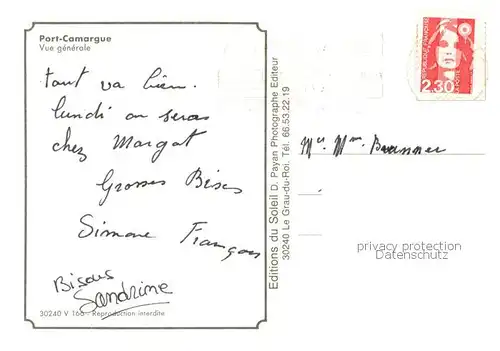 Port-Camargue
Vue générale
tout va bien.
lundi on seras
chez Margot
Grosses Bises
Simone François
Bisous
Sandrine
30240 V 166 - Reproduction interdite
Editions du Soleil D. Payan Photographe Editeur
30240 Le Grau-du-Roi. Tél. 66.53.22.19
REPUBLIQUE FRANÇAISE
LA POSTE
2,30
Mr. Mme Brunner
privacy protection
Datenschutz